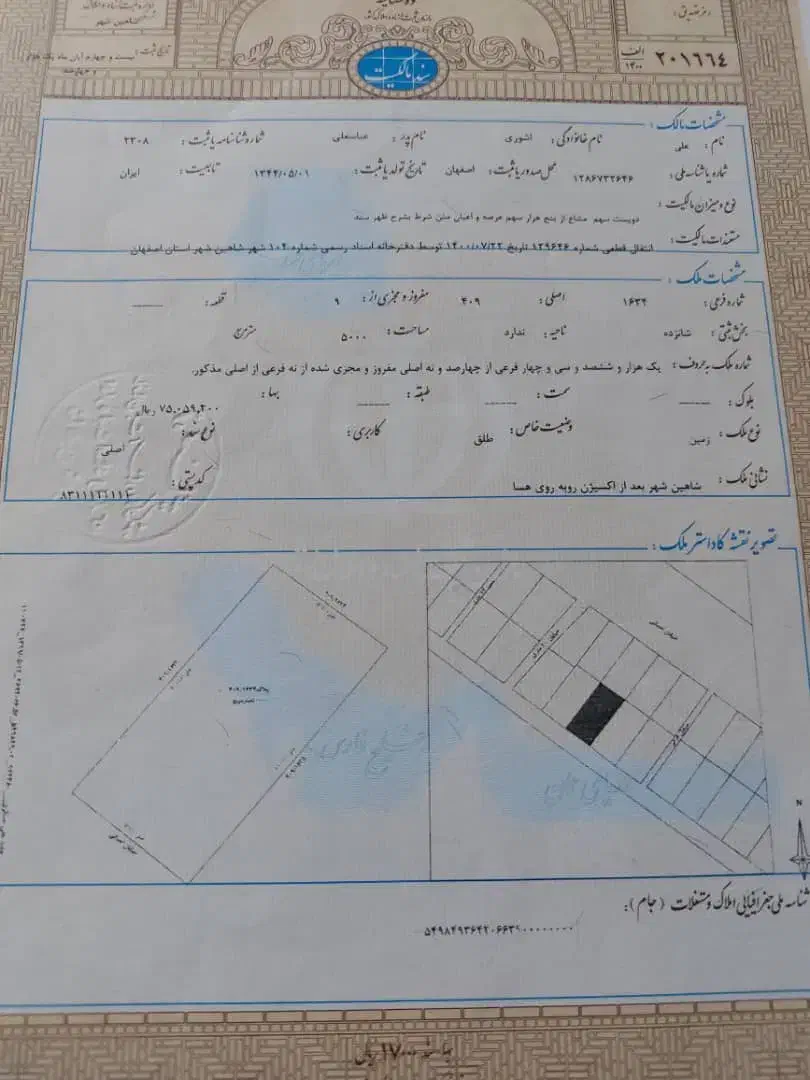 شاهین شهر
تاریخ ثبت : بیست و چهارم آبان ماه یک هزار
و چهارصد
سند مالکیت
الف
۱۴۰۰
۲۰۱۶۶۴
مشخصات مالک :
نام : علی نام خانوادگی : اشوری نام پدر : عباسعلی شماره شناسنامه یا ثبت : ۲۳۰۸
شماره یا شناسه ملی : ۱۲۸۶۷۳۲۶۴۶ محل صدور یا ثبت : اصفهان تاریخ تولد یا ثبت : ۱۳۴۴/۰۵/۰۱ تابعیت : ایران
نوع و میزان مالکیت : دویست سهم مشاع از پنج هزار سهم عرصه و اعیان متن شرط بشرح ظهر سند
مستندات مالکیت : انتقال قطعی شماره ۱۳۹۶۴۶ تاریخ ۱۴۰۰/۰۷/۲۲ توسط دفترخانه اسناد رسمی شماره ۱۰۴ شهر شاهین شهر استان اصفهان
مشخصات ملک :
شماره فرعی : ۱۶۳۴ اصلی : ۴۰۹ مفروز و مجزی از : ۹ قطعه : ------
بخش ثبتی : شانزده ناحیه : ندارد مساحت : ۵۰۰۰ مترمربع
شماره ملک به حروف : یک هزار و ششصد و سی و چهار فرعی از چهارصد و نه اصلی مفروز و مجزی شده از نه فرعی از اصلی مذکور.
بلوک : ------ سمت : ------ طبقه : ------ بها : ۷۵,۰۵۹,۲۰۰ ریال
نوع ملک : زمین وضعیت خاص : طلق کاربری : نوع سند : اصلی
نشانی ملک : شاهین شهر بعد از اکسیژن روبه روی هسا کد پستی : ۸۳۱۱۱۱۱۱۱۱
تصویر نقشه کاداستر ملک :
N
شناسه ملی جغرافیایی املاک و مستغلات (جام) :
بها ۱۷۰۰۰ ریال